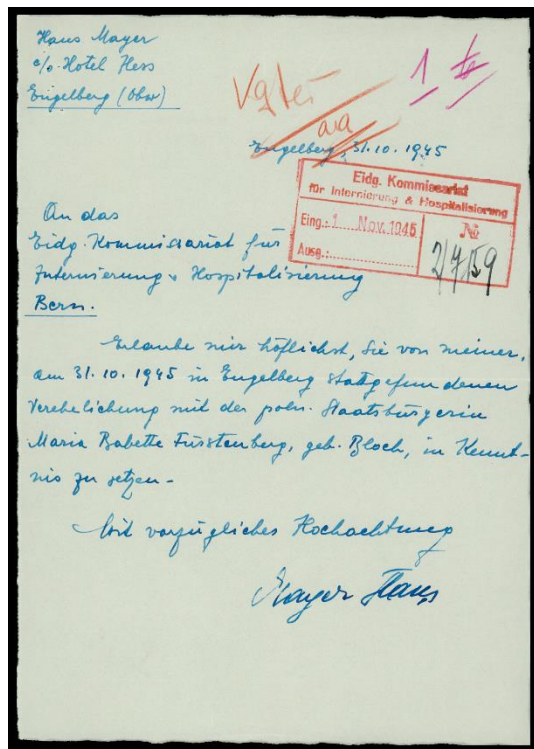 Hans Mayer
c/o Hotel Hess
Engelberg (Obw)
1
Engelberg, 31.10.1945
Eidg. Kommissariat
für Internierung & Hospitalisierung
Eing.: 1. Nov. 1945 №
Ausg.:
An das
Eidg. Kommissariat für
Internierung & Hospitalisierung
Bern.
Erlaube mir höflichst, Sie von meiner,
am 31.10.1945 in Engelberg stattgefundenen
Verehelichung mit der poln. Staatsbürgerin
Maria Babette Fürstenberg, geb. Bloch, in Kennt-
nis zu setzen-
Mit vorzüglicher Hochachtung
Mayer Hans